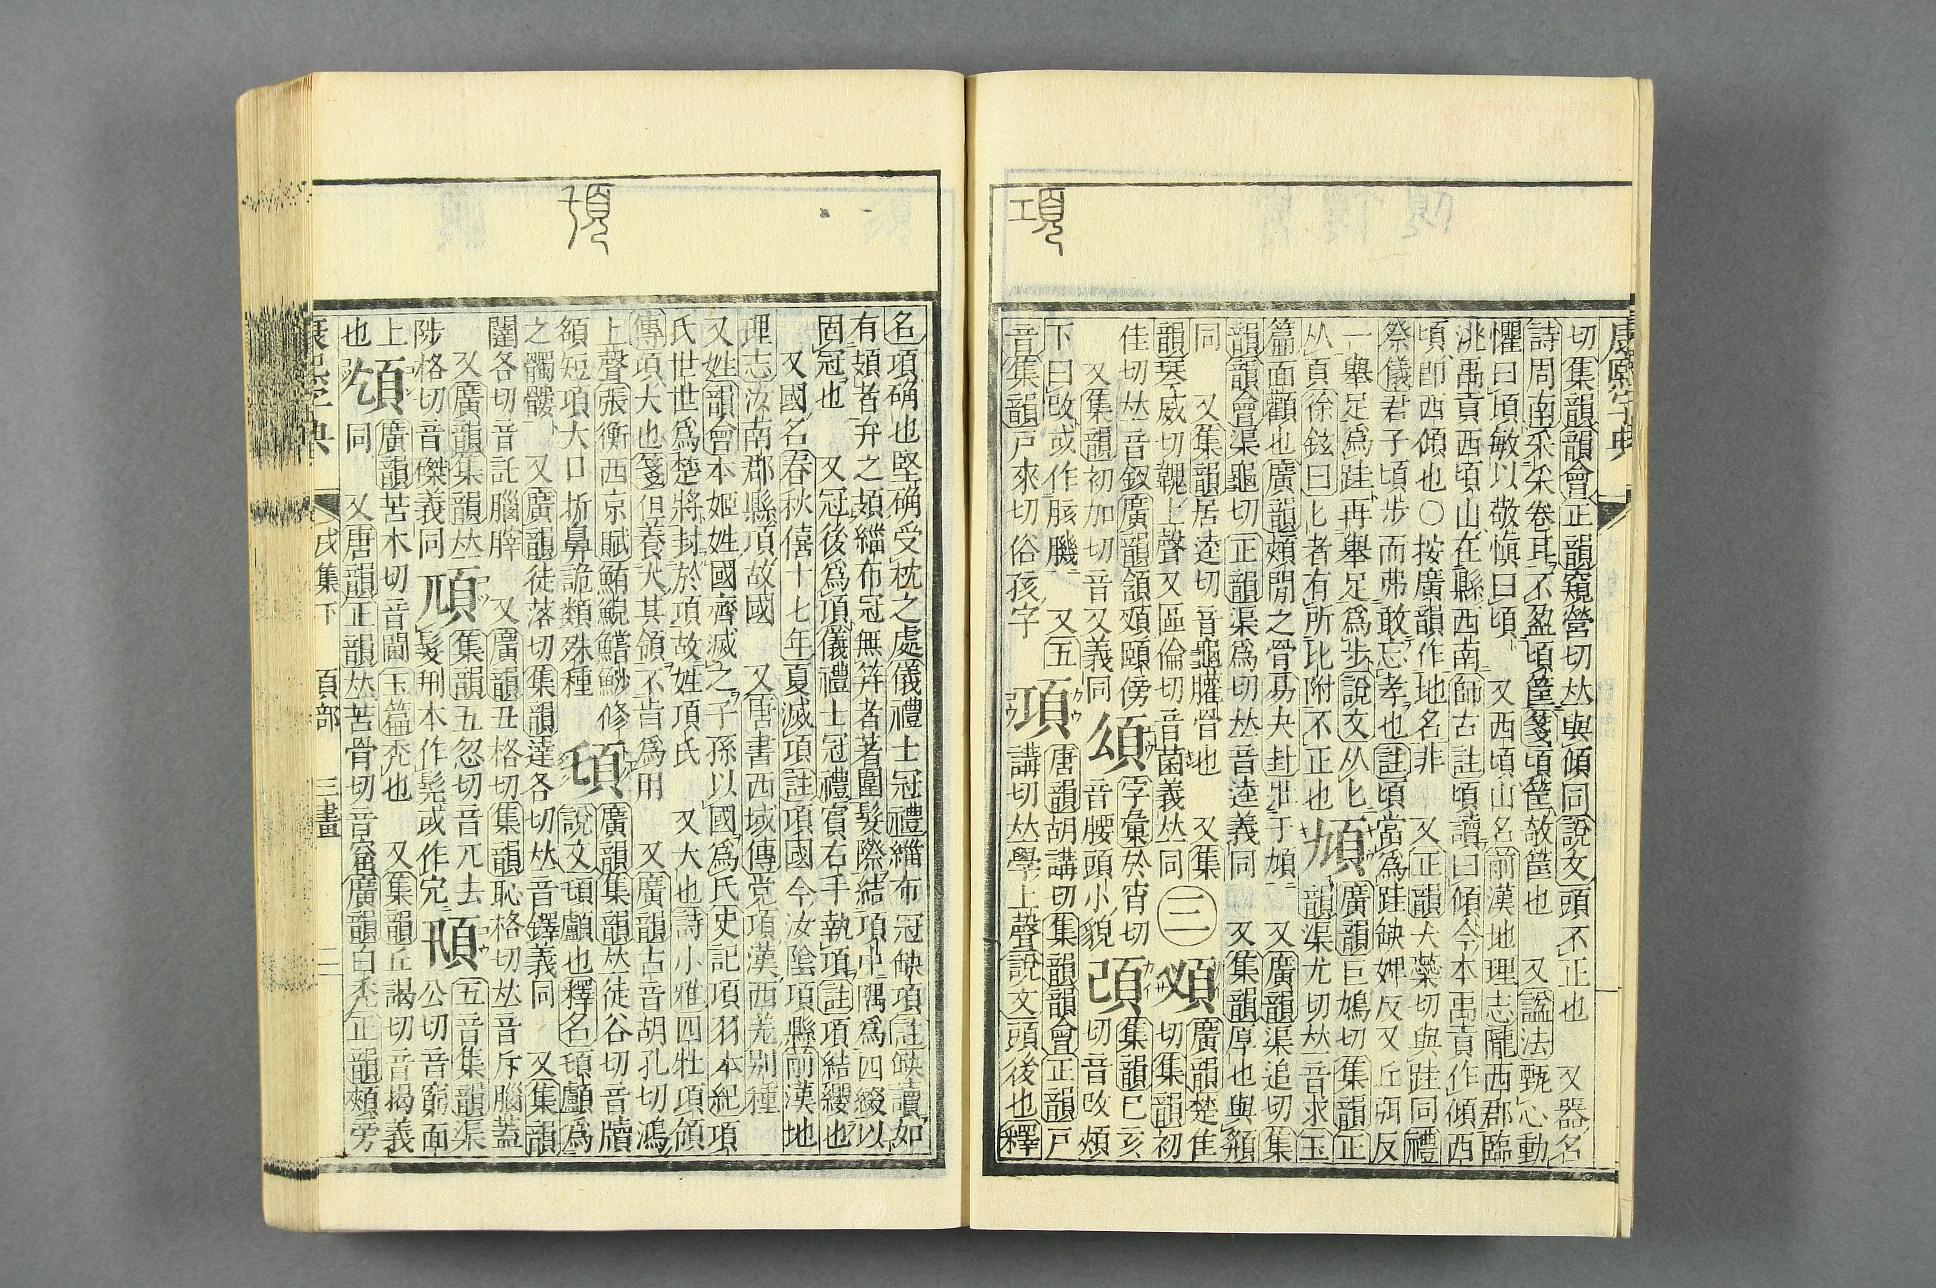 康熙字典
切集韻韻會正韻窺營切𠀤與傾同說文頭不正也　又器名
詩周南采采卷耳不盈頃筐箋頃筐欹筐也　又諡法甄心動
懼曰頃敏以敬愼曰頃　又西頃山名前漢地理志隴西郡臨
洮禹貢西頃山在縣西南師古註頃讀曰傾今本禹貢作傾西
頃卽西傾也○按廣韻作地名非　又正韻犬蘂切與跬同禮
祭儀君子頃步而弗敢忘孝也註頃當爲跬缺婢反又丘弭反
一舉足爲跬再舉足爲步說文从匕
从頁徐鉉曰匕者有所比附不正也
頄
廣韻巨鳩切集韻正
韻渠尤切𠀤音求玉
篇面顴也廣韻頰閒之骨易夬封壯于頄　又廣韻渠追切集
韻韻會渠龜切正韻渠爲切𠀤音逵義同　又集韻厚也與頯
同　又集韻居逵切音龜臞脀也　又集
韻琴威切上聲又區倫切音菌義𠀤同
三
廣韻楚佳
切集韻初
佳切𠀤音釵廣韻頷頰頤傍
又集韻初加切音叉義同
字彙於宵切
音腰頭小貌
集韻已亥
切音改頰
下曰改或作胲䑏　又五
音集韻戶來切俗孩字
項
唐韻胡講切集韻韻會正韻戶
講切𠀤學上聲說文頭後也釋
項
項
名項确也堅确受枕之處儀禮士冠禮緇布冠缺項註缺讀如
有頍者弁之頍緇布冠無筓者著圍髮際結項中隅爲四綴以
固冠也　又冠後爲項儀禮士冠禮賓右手執項註項結纓也
又國名春秋僖十七年夏滅項註項國今汝陰項縣前漢地
理志汝南郡縣項故國　又唐書西域傳党項漢西羌别種
又姓韻會本姬姓國齊滅之子孫以國爲氏史記項羽本紀項
氏世世爲楚將封於項故姓項氏　又大也詩小雅四牡項領
傳項大也箋但養大其領不肯爲用　又廣韻古音胡孔切鴻
上聲張衡西京賦鮪鯢鱨魦修
額短項大口折鼻詭類殊種
廣韻集韻𠀤徒谷切音牘
說文顱也釋名顱爲
之髑髏　又廣韻徒落切集韻達各切𠀤音鐸義同　又集韻
闥各切音託腦髀　又廣韻丑格切集韻恥格切𠀤音斥腦蓋
又廣韻集韻𠀤
陟格切音磔義同
集韻五忽切音兀去
髮刑本作髡或作完
五音集韻渠
公切音窮面
上
也
廣韻苦木切音闃玉篇禿也　又集韻丘謁切音揭義
同　又唐韻正韻𠀤苦骨切音窟廣韻白禿正韻頰旁
康熙字典　戌集下　頁部　三畫　二